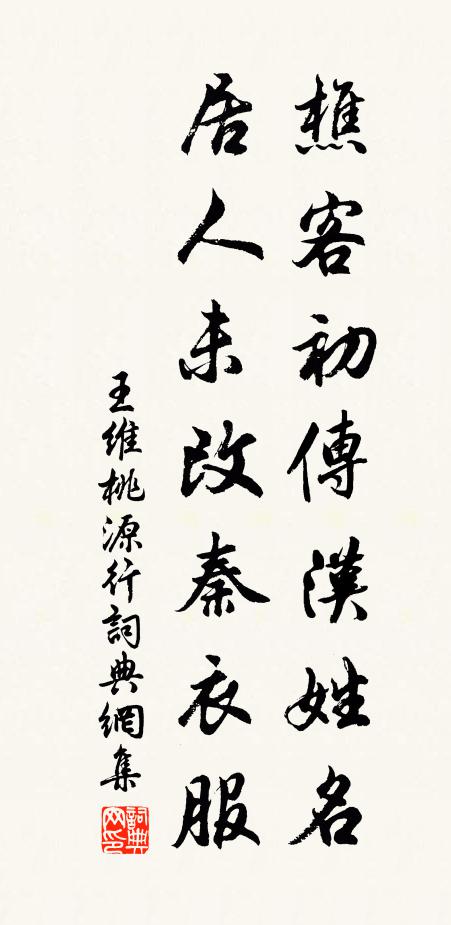 樵客初傳漢姓名
居人未改秦衣服
王維桃源行詞典網集
詞典網印